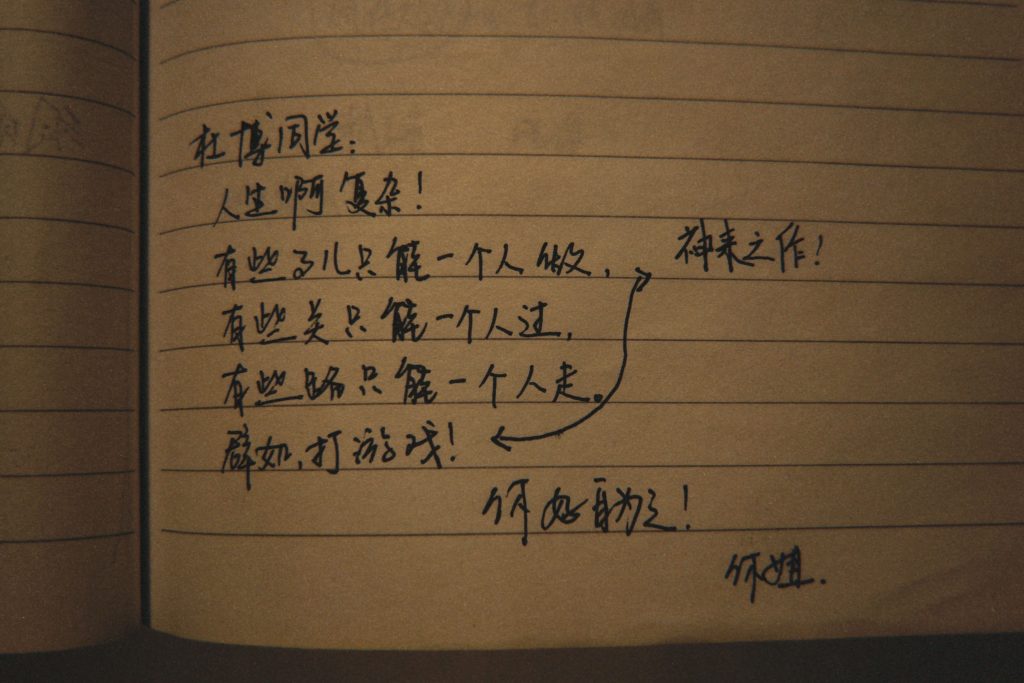 杜博同学：
人生啊复杂！
有些事儿只能一个人做，
有些关只能一个人过，
有些路只能一个人走。
辟如，打游戏！
神来之作！
好自为之！